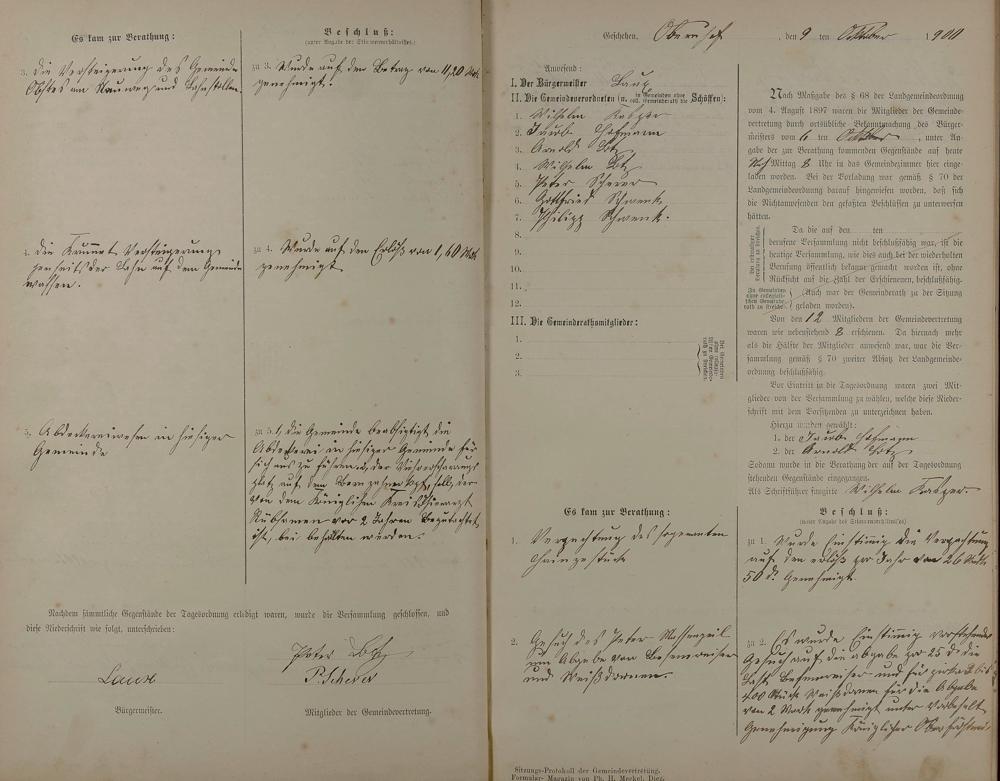 Es kam zur Berathung:
Beschluß:
(unter Angabe des Stimmenverhältnisses.)
3. Die Versteigerung des Gemeinde
Obstes am Nauweg und Lahnstellen.
zu 3. Wurde auf den Betrag von 11,20 Mk.
genehmigt.
4. Die Krummet Versteigerung
jenseits der Lahn auf den Gemeinde
wassen.
zu 4. Wurde auf den Erlös von 1,60 Mk
genehmigt
5. Abdeckereiwesen in hiesiger
Gemeinde
zu 5. Die Gemeinde beabsichtigt die
Abdeckerei in hiesiger Gemeinde für
sich aus zu führen, der
Platz auf dem soll, der
von dem Königlichen Kreis Thierarzt
vor 2 Jahren begutachtet
ist, bei behalten werden.
Nachdem sämmtliche Gegenstände der Tagesordnung erledigt waren, wurde die Versammlung geschlossen, und
diese Niederschrift wie folgt, unterschrieben:
Peter
P. Scherer
Bürgermeister.
Mitglieder der Gemeindevertretung.
Geschehen, Obernhof, den 9 ten Oktober 1900
Anwesend:
I. Der Bürgermeister
II. Die Gemeindeverordneten (u. in Gemeinden ohne coll. Gemeinderath die Schöffen):
1. Wilhelm Kasper
2. Jacob Hofmann
3. Arnold Lotz
4. Wilhelm Lotz
5. Peter Scherer
6. Gottfried Schwenk
7. Philipp Schwenk.
8.
9.
10.
11.
12.
III. Die Gemeinderathsmitglieder:
1.
2.
3.
Nach Maßgabe des § 68 der Landgemeindeordnung
vom 4. August 1897 waren die Mitglieder der Gemeinde-
vertretung durch ortsübliche Bekanntmachung des Bürger-
meisters vom 6 ten Oktober, unter An-
gabe der zur Berathung kommenden Gegenstände auf heute
Nachmittag 8 Uhr in das Gemeindezimmer hier einge-
laden worden. Bei der Vorladung war gemäß § 70 der
Landgemeindeordnung darauf hingewiesen worden, daß sich
die Nichtanwesenden den gefaßten Beschlüssen zu unterwerfen
hätten.
Da die auf den ten
berufene Versammlung nicht beschlußfähig war, ist die
heutige Versammlung, wie dies auch bei der wiederholten
Berufung öffentlich bekannt gemacht worden ist, ohne
Rücksicht auf die Zahl der Erschienenen, beschlußfähig.
(Auch war der Gemeinderath zu der Sitzung
geladen worden).
Von den 12 Mitgliedern der Gemeindevertretung
waren wie nebenstehend 8 erschienen. Da hiernach mehr
als die Hälfte der Mitglieder anwesend war, war die Ver-
sammlung gemäß § 70 zweiter Absatz der Landgemeinde-
ordnung beschlußfähig.
Vor Eintritt in die Tagesordnung waren zwei Mit-
glieder von der Versammlung zu wählen, welche diese Nieder-
schrift mit dem Vorsitzenden zu unterzeichnen haben.
Hierzu wurden gewählt:
1. der Jacob Hofmann
2. der Arnold Lotz
Sodann wurde in die Berathung der auf der Tagesordnung
stehenden Gegenstände eingegangen.
Als Schriftführer fungirte Wilhelm Kasper.
Es kam zur Berathung:
Beschluß:
(unter Angabe des Stimmenverhältnisses)
1. Verpachtung des sogenannten
Hainzestück
zu 1. Wurde Einstimmig die Verpachtung
auf den erlös pro Jahr von 26 Mark
50 d. genehmigt.
2. Gesuch des Peter Massengeil
um Abgabe von Besenreiser
und Weißdornen.
zu 2. Es wurde Einstimmig vorstehendes
Gesuch auf die abgabe pro 25 d. die
Last Besenreiser und für bis
400 Stück Weißdornen für die Abgabe
von 2 Mark genehmigt unter Vorbehalt
Genehmigung Königlicher Oberförsterei.
Sitzungs-Protokoll der Gemeindevertretung.
Formular-Magazin von Ph. H. Meckel, Diez.